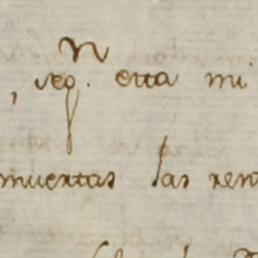 , seg.n esta mi
muertas las ren